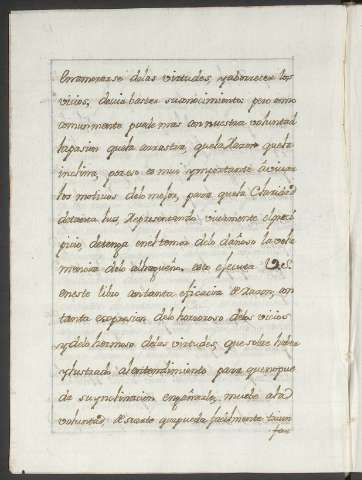 Enamorarse delas virtudes, y aborrecer los
vicios, devia bastar su conocimiento; pero como
comunmente puede mas con nuestra voluntad
la pasion que la arrastra, que la Razon que la
inclina, por eso es mui importante avivar
los motivos delo mejor, para que la Claridad
dela luz, Representando vivamente el preci
picio, detenga en el temor delo dañoso la vehe
mencia delo alhagueño, esto executa V.S.
en este libro con tanta eficacia de razon, con
tanta expresion delo horroroso delos vicios
y delo hermoso delas virtudes, que sobre haber
ylustrado al entendimiento para que no pue
da su ynclinacion engañarle, mueve ala
voluntad, de suerte que pueda facilmente triun
far